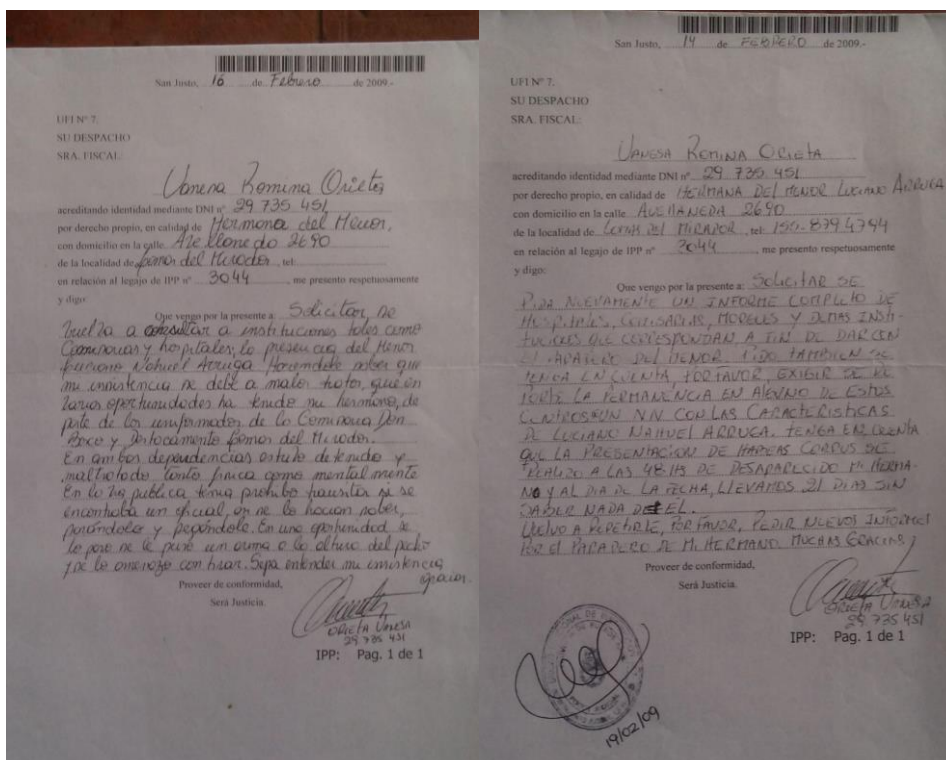 San Justo, 16 de Febrero de 2009.-
UFI Nº 7.
SU DESPACHO
SRA. FISCAL:
Vanesa Romina Orieta
acreditando identidad mediante DNI nº 29 735 451
por derecho propio, en calidad de Hermana del Menor,
con domicilio en la calle Avellaneda 2690
de la localidad de Lomas del Mirador, tel:
en relación al legajo de IPP nº 3044, me presento respetuosamente
y digo:
Que vengo por la presente a: Solicitar, se
vuelva a consultar a instituciones tales como
Comisarias y hospitales, la presencia del Menor
Luciano Nahuel Arruga. Haciendole saber que
mi insistencia se debe a malos tratos, que en
varias oportunidades ha tenido mi hermano, de
parte de los uniformados de la Comisaria Don
Bosco y Destacamento Lomas del Mirador.
En ambas dependencias estuvo detenido y
maltratado tanto fisica como mental mente
En la via publica tenia prohibo transitar si se
encontraba un oficial, en se lo hacian saber,
parándolo y pegándole. En una oportunidad se
lo paro se le puso un arma a la altura del pecho
y se lo amenazo con tirar. Sepa entender mi insistencia
gracias.
Proveer de conformidad,
Será Justicia.
ORIETA VANESA
29 735 451
IPP: Pag. 1 de 1
San Justo, 14 de FEBRERO de 2009.-
UFI Nº 7.
SU DESPACHO
SRA. FISCAL:
VANESA ROMINA ORIETA
acreditando identidad mediante DNI nº 29 735 451
por derecho propio, en calidad de HERMANA DEL MENOR LUCIANO ARRUGA
con domicilio en la calle AVELLANEDA 2690
de la localidad de LOMAS DEL MIRADOR, tel: 155-879 4794
en relación al legajo de IPP nº 3044, me presento respetuosamente
y digo:
Que vengo por la presente a: SOLICITAR SE
PIDA NUEVAMENTE UN INFORME COMPLETO DE
HOSPITALES, COMISARIAS, MORGUES Y DEMAS INSTI-
TUCIONES QUE CORRESPONDAN, A FIN DE DAR CON
EL PARADERO DEL MENOR. PIDO TAMBIEN SE
TENGA EN CUENTA, POR FAVOR, EXIGIR SE
LA PERMANENCIA EN ALGUNO DE ESTOS
CENTROS UN NN CON LAS CARACTERISTICAS
DE LUCIANO NAHUEL ARRUGA. TENGA EN CUENTA
QUE LA PRESENTACION DE HABEAS CORPUS SE
REALIZO A LAS 48 HS DE DESAPARECIDO MI HERMA-
NO Y AL DIA DE LA FECHA, LLEVAMOS 21 DIAS SIN
SABER NADA DE ÉL.
VUELVO A REPETIRLE, POR FAVOR, PEDIR NUEVOS INFORMES
POR EL PARADERO DE MI HERMANO. MUCHAS GRACIAS.
Proveer de conformidad,
Será Justicia.
ORIETA VANESA
29 735 451
IPP: Pag. 1 de 1
19/02/09